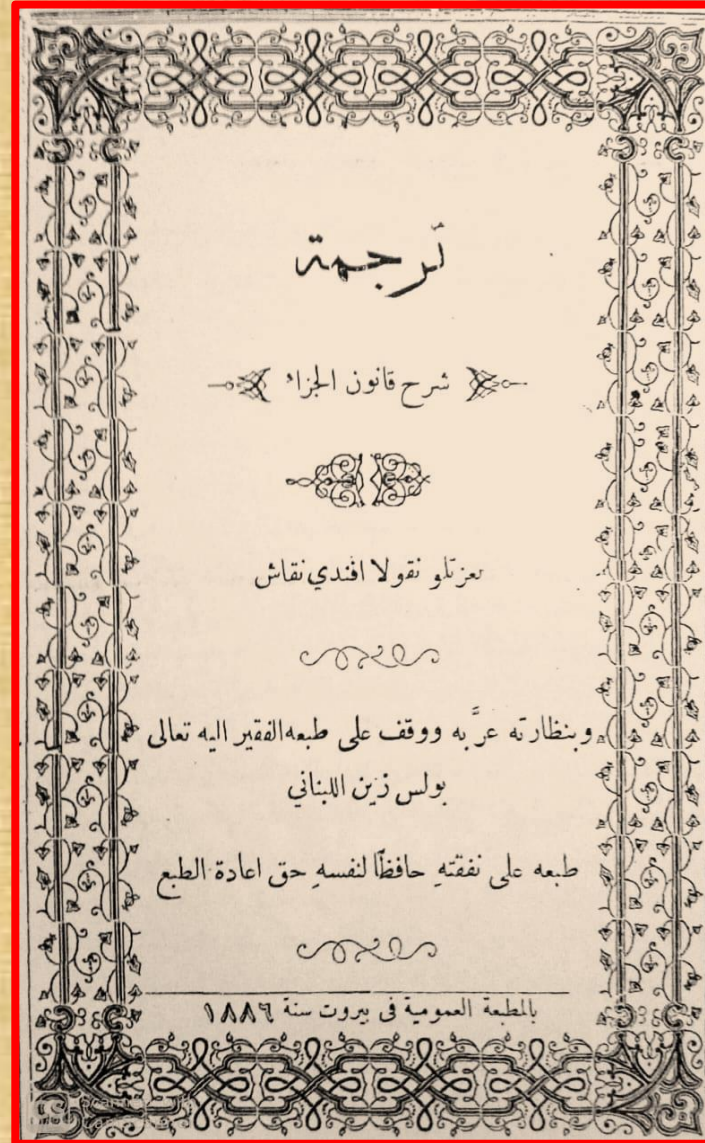 ترجمة
شرح قانون الجزاء
لعزتلو نقولا افندي نقاش
وبنظارته عرَّبه ووقف على طبعه الفقير اليه تعالى
بولس زين اللبناني
طبعه على نفقتهِ حافظًا لنفسهِ حق اعادة الطبع
بالمطبعة العمومية فى بيروت سنة ١٨٨٦